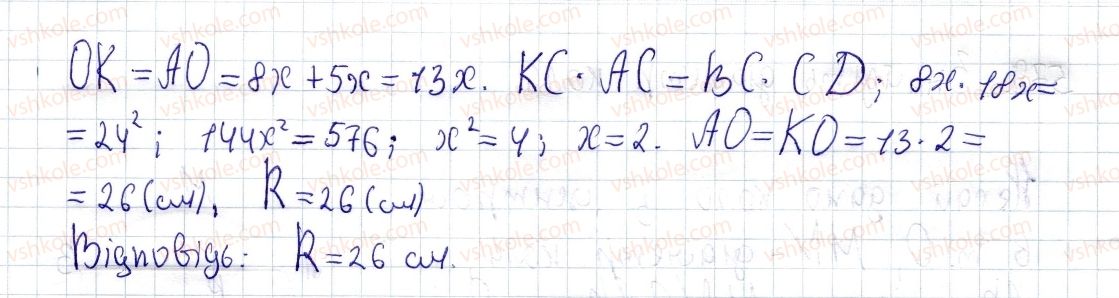 OK = AO = 8x + 5x = 13x. KC · AC = BC · CD; 8x · 18x =
= 24²; 144x² = 576; x² = 4; x = 2. AO = KO = 13 · 2 =
= 26 (см), R = 26 (см)
Відповідь: R = 26 см.